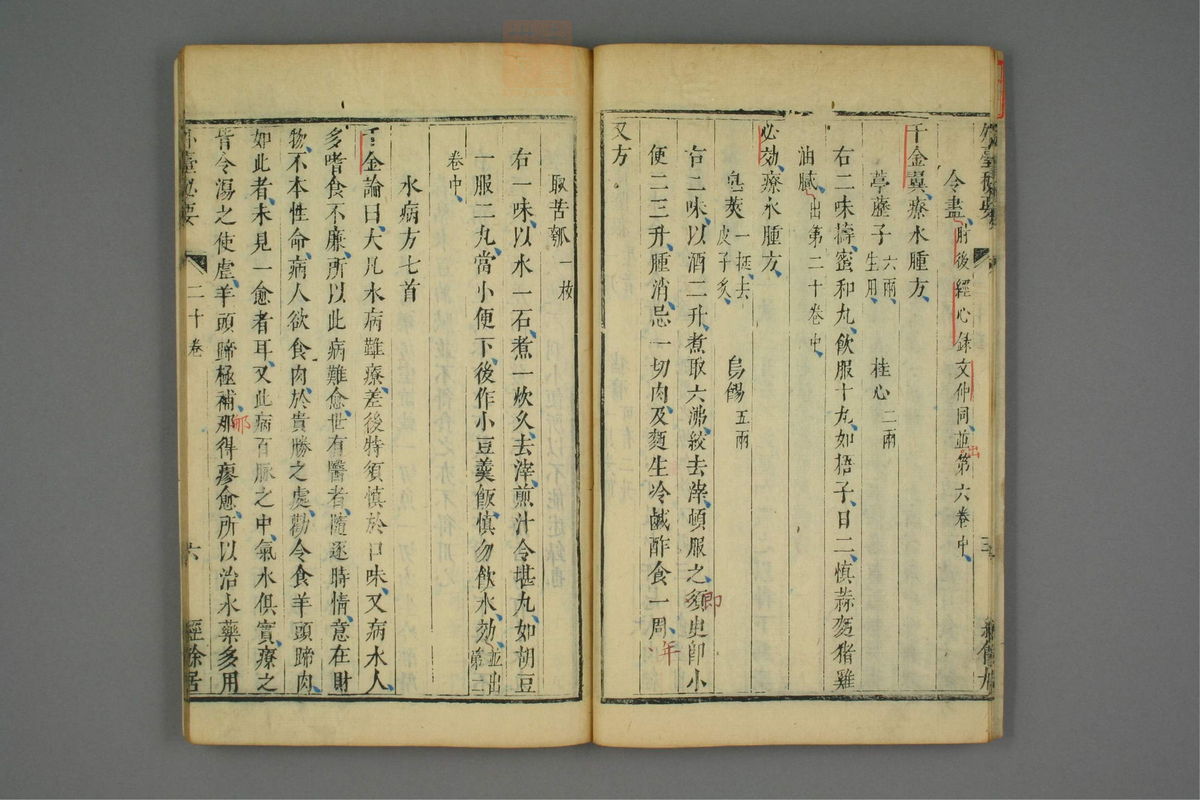 外臺秘要
令盡肘後經心錄文仲同並第六卷中
出
千金翼療水腫方
葶藶子六兩生用 桂心二兩
右二味擣蜜和丸飲服十丸如梧子日二慎蒜麪猪雞
油膩出第二十卷中
必効療水腫方
皂莢一挺去皮子炙 烏餳五兩
右二味以酒二升煮取六沸絞去滓頓服之須臾卽小
卽
便二三升腫消忌一切肉及麪生冷鹹酢食一周
年
又方
取苦瓠一枚
右一味以水一石煮一炊久去滓煎汁令堪丸如胡豆
一服二丸當小便下後作小豆羹飯慎勿飲水効並出第二
卷中
水病方七首
千金論曰大凡水病難療差後特須慎於口味又病水人
多嗜食不廉所以此病難愈世有醫者隨逐時情意在財
物不本性命病人欲食肉於貴勝之處勸令食羊頭蹄肉
如此者未見一愈者耳又此病百脈之中氣水俱實療之
皆令湯之使虛羊頭蹄極補那得瘳愈所以治水藥多用
那
外臺秘要 二十卷 六 經餘居